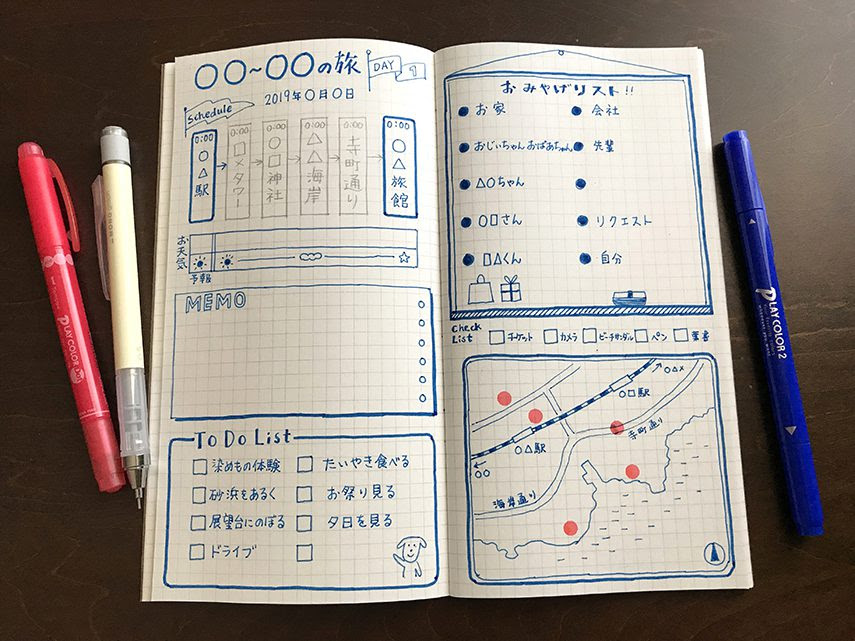 ○○~○○の旅
DAY 1
2019年○月○日
Schedule
0:00
○△駅
0:00
□×タワー
0:00
○□神社
0:00
△△海岸
0:00
寺町通り
0:00
○△旅館
お天気
予報
MEMO
To Do List
染めもの体験
たいやき食べる
砂浜をあるく
お祭り見る
展望台にのぼる
夕日を見る
ドライブ
おみやげリスト!!
お家
会社
おじいちゃん おばあちゃん
先輩
△○ちゃん
○□さん
リクエスト
□△くん
自分
Check List
チケット
カメラ
ビーチサンダル
ペン
葉書
○△×
○□駅
寺町通り
○△駅
○○
海岸通り
PLAY COLOR 2
PLAY COLOR 2